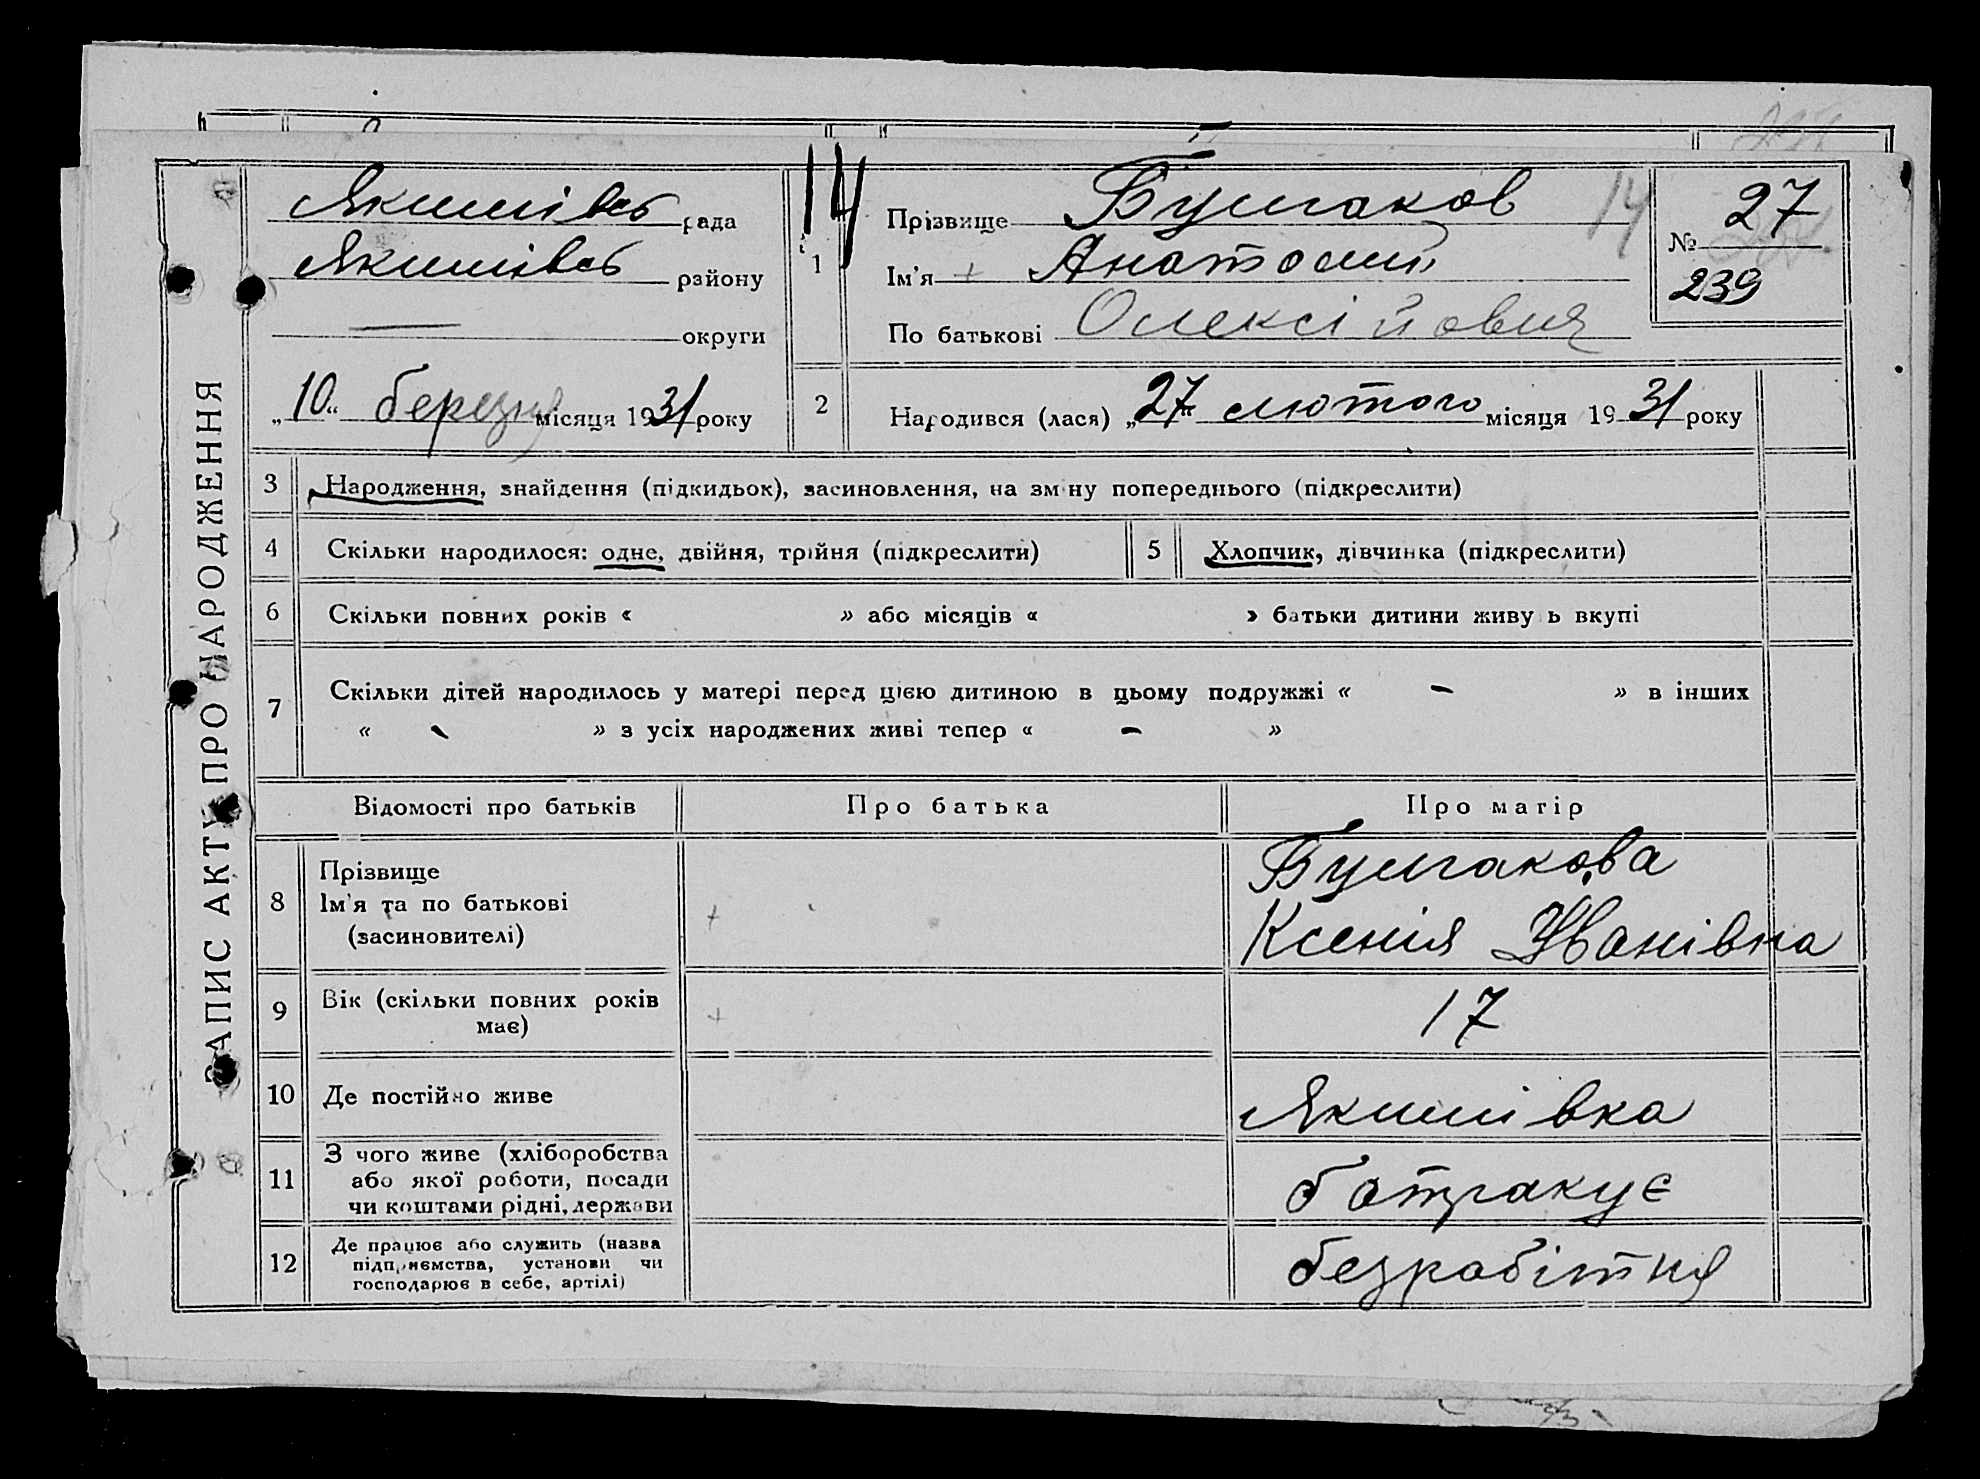 ЗАПИС АКТУ ПРО НАРОДЖЕННЯ
Якимівсь рада
Якимівсь району
— округи
„10“ березня місяця 1931 року
14
1 Прізвище Булгаков 14
Ім'я + Анатолий
По батькові Олексійович
№ 27
239
2 Народився (лася) „27“ лютого місяця 1931 року
3 Народження, знайдення (підкидьок), засиновлення, на зміну попереднього (підкреслити)
4 Скільки народилося: одне, двійня, трійня (підкреслити) 5 Хлопчик, дівчинка (підкреслити)
6 Скільки повних років « » або місяців « » батьки дитини живуть вкупі
7 Скільки дітей народилось у матері перед цією дитиною в цьому подружжі « - » в інших
« - » з усіх народжених живі тепер « - »
Відомості про батьків Про батька Про матір
8 Прізвище
Ім'я та по батькові
(засиновителі)
+
Булгакова
Ксенія Іванівна
9 Вік (скільки повних років
має)
+ 17
10 Де постійно живе Якимівка
11 З чого живе (хліборобства
або якої роботи, посади
чи коштами рідні, держави
батракує
12 Де працює або служить (назва
підприємства, установи чи
господарює в себе, артілі)
безробітня